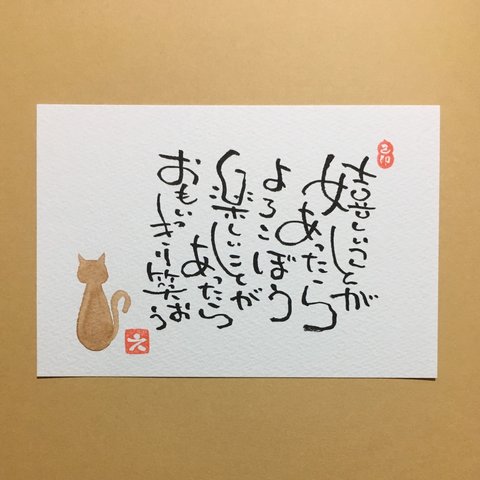 嬉しいことが
あったら
よろこぼう
楽しいことが
あったら
おもいっきり笑おう
六